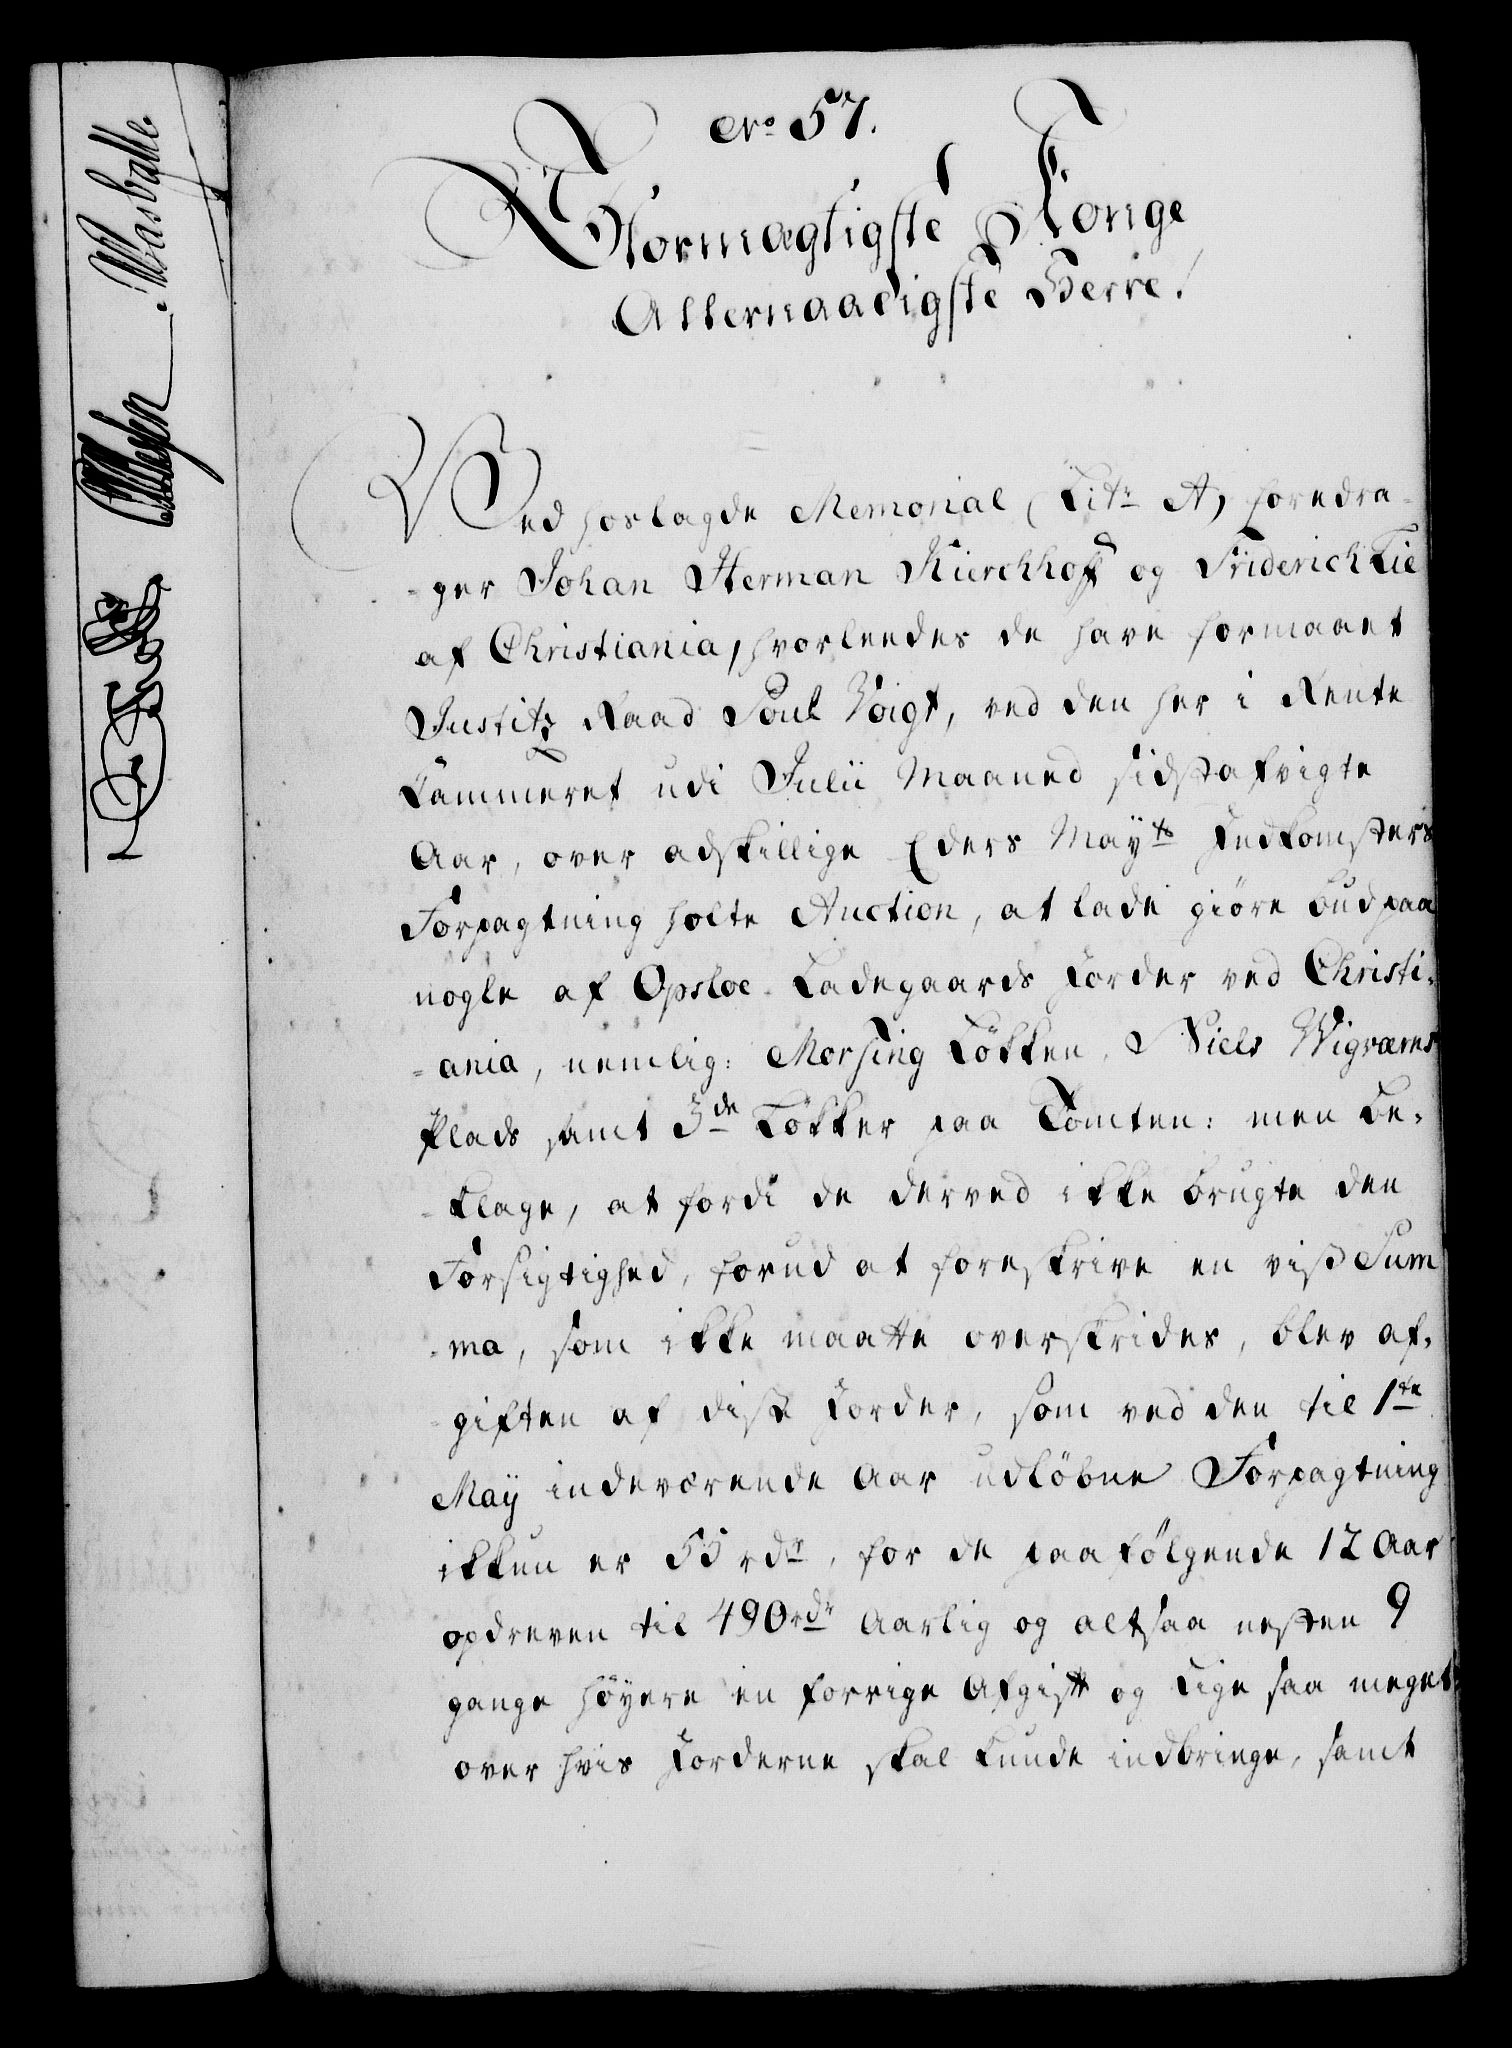 Nro 57.
Stormægtigste Konge
Allernaadigste Herre!
Ved hoslagde Memorial (Litr A) foredra-
-ger Johan Herman Kierchhoff og Friderich Lie
af Christiania, hvorleedes de have formaaet
Justitz Raad Poul Voigt, ved den her i Rente
Cammeret udi Julii Maaned sidstafvigte
Aar, over adskillige Eders Mayts Indkomsters
Forpagtning holte Auction, at lade giøre Bud paa
nogle af Opsloe Ladegaards Jorder ved Christi-
-ania, nemlig: Morsing Løkken, Niels Wigræms
Plads samt 3de Løkker paa Tomten: men be-
-klage, at fordi de derved ikke brugte den
Forsigtighed, forud at foreskrive en viss Sum-
-ma, som ikke maatte overskrides, blev af-
-giften af disse Jorder, som ved den til 1te
May indeværende Aar udløbne Forpagtning
ikkun er 55 rdr, for de paafølgende 12 Aar
opdreven til 490 rdr Aarlig og altsaa nesten 9
gange høyere en forrige Afgift og lige saa meget
over hvis Jorderne skal kunde indbringe, samt